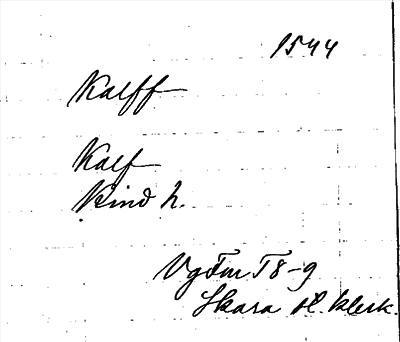 1544
Kalff
Kalf
Kind h.
VgFmT 8-9
Skara st. klerk.